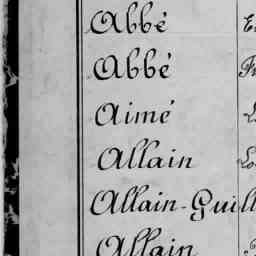 Abbé
Abbé
Aimé
Allain
Allain-Guill
Allain